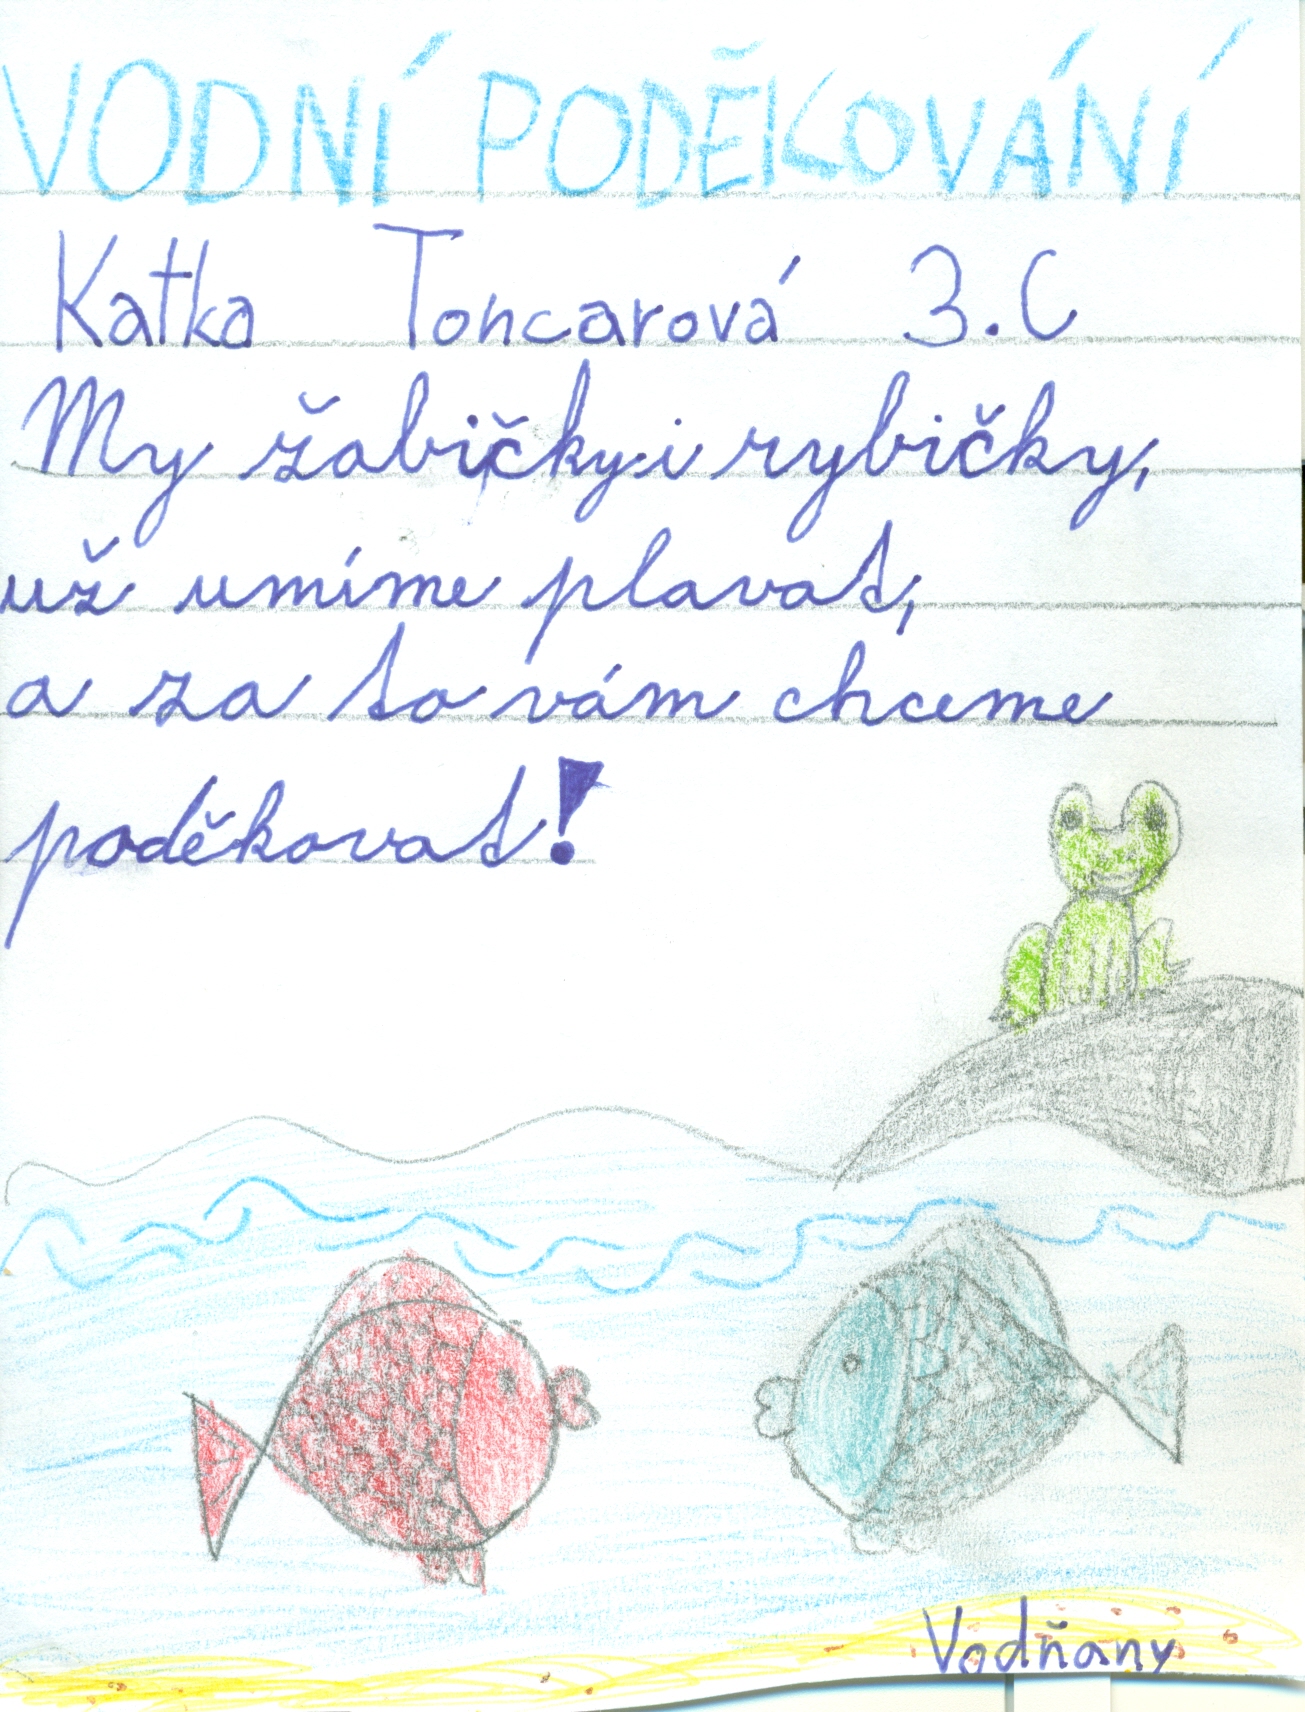 VODNÍ PODĚKOVÁNÍ
Katka Toncarová 3.C
My žabičky i rybičky,
už umíme plavat,
a za to vám chceme
poděkovat!
Vodňany